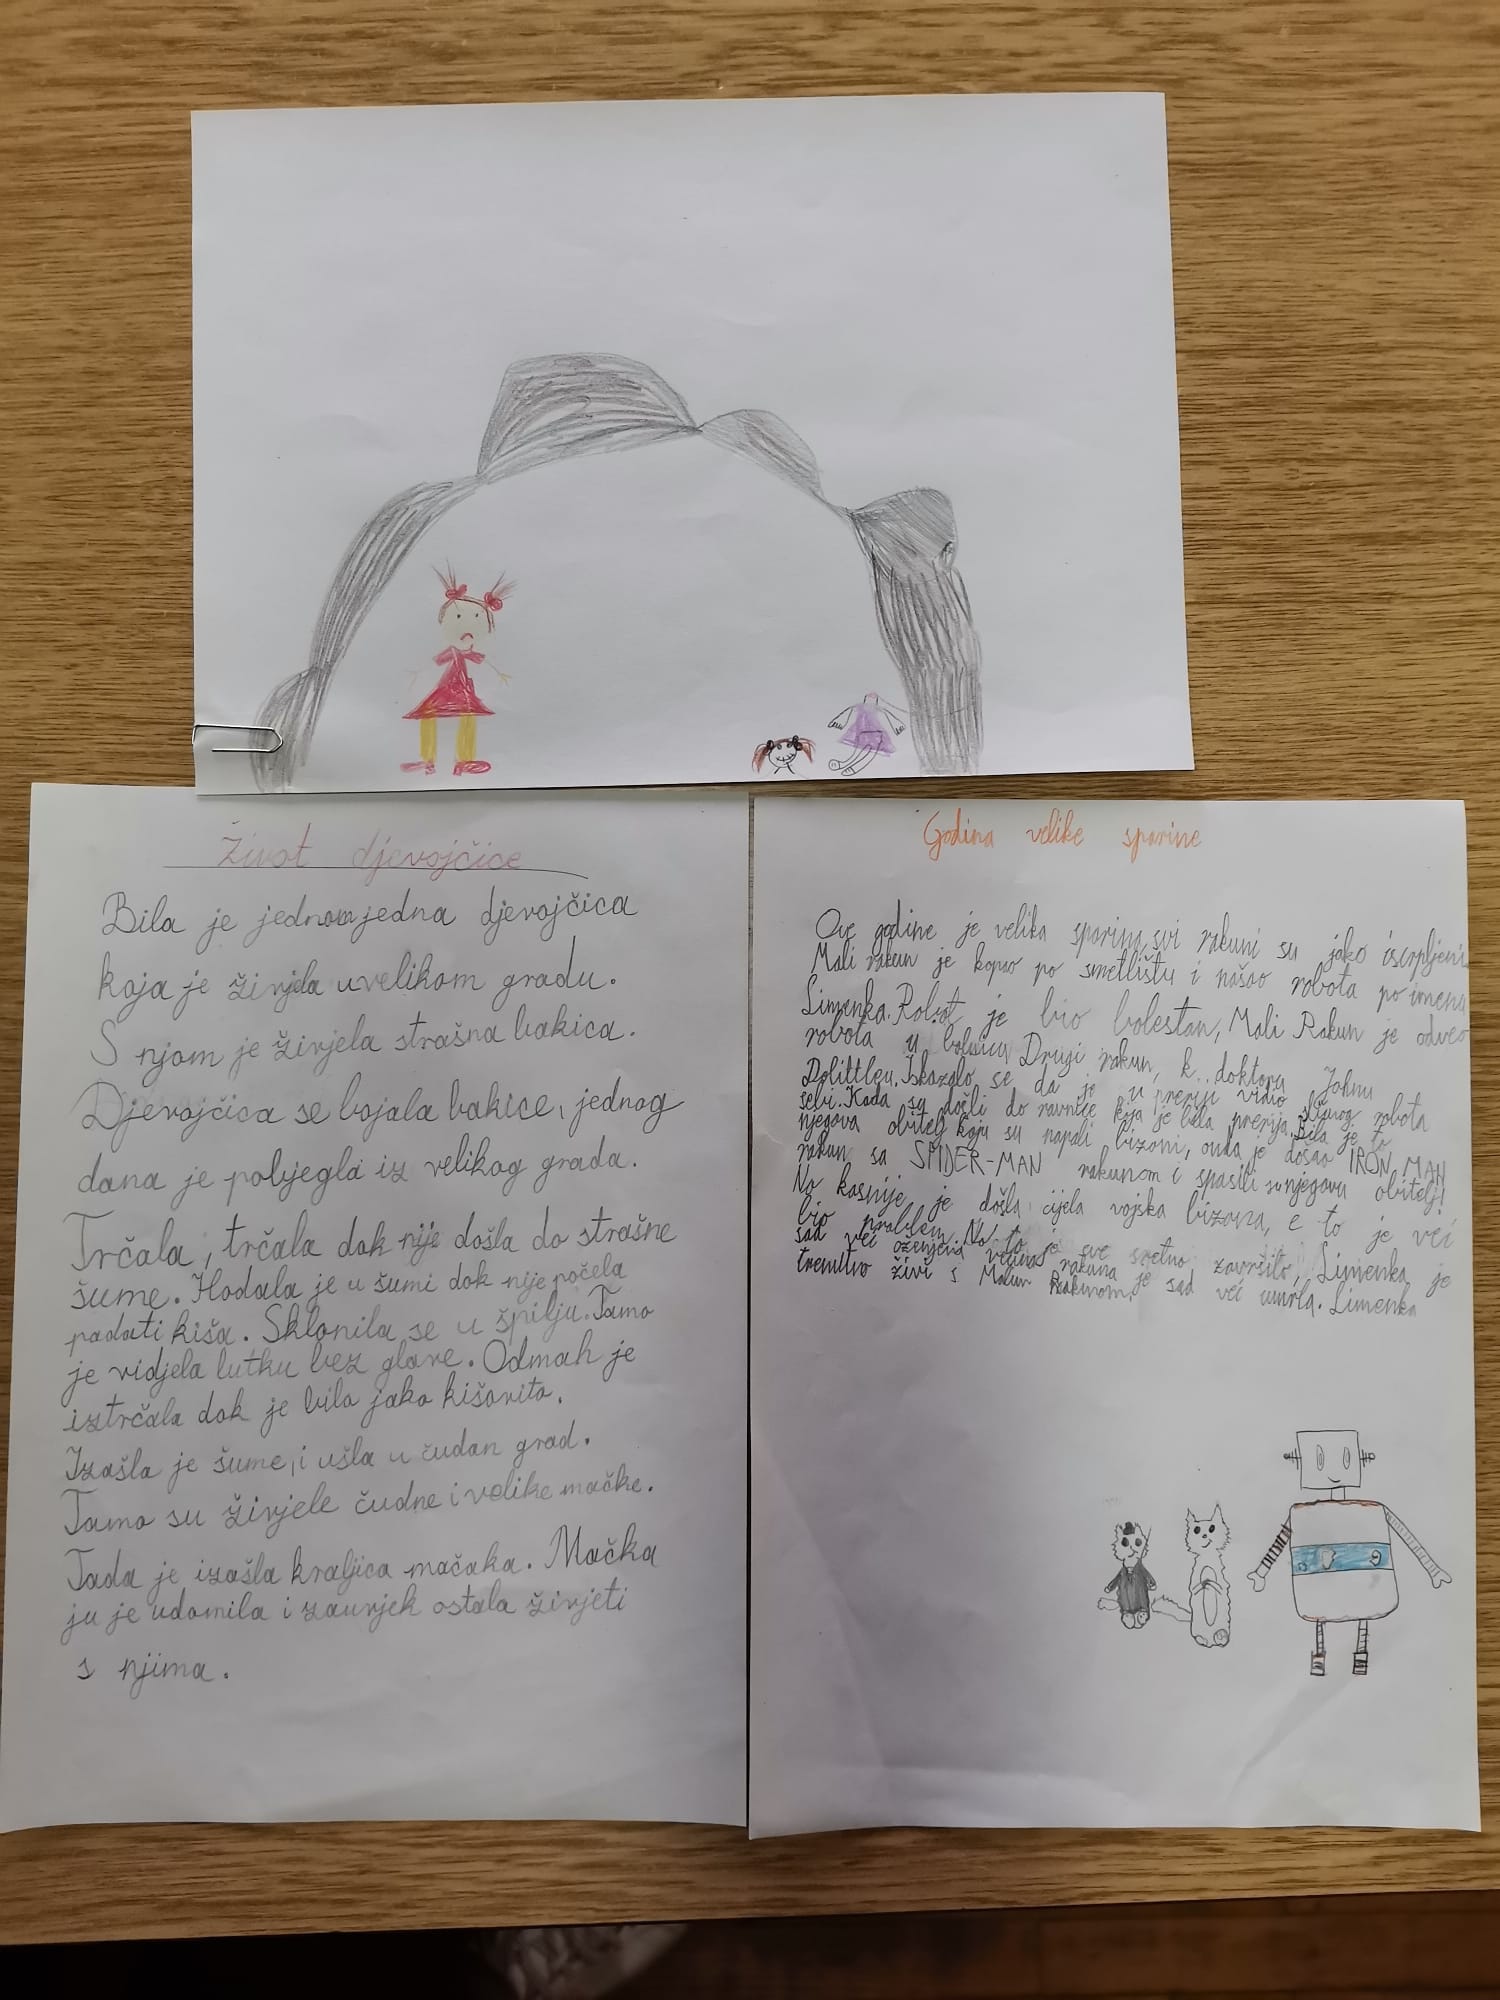 Život djevojčice
Bila je jednom jedna djevojčica
koja je živjela u velikom gradu.
S njom je živjela strašna bakica.
Djevojčica se bojala bakice, jednog
dana je pobjegla iz velikog grada.
Trčala, trčala dok nije došla do strašne
šume. Hodala je u šumi dok nije počela
padati kiša. Sklonila se u špilju. Tamo
je vidjela lutku bez glave. Odmah je
iztrčala dok je bilo jako kišovito.
Izašla je šume, i ušla u čudan grad.
Tamo su živjele čudne i velike mačke.
Tada je izašla kraljica mačaka. Mačka
ju je udomila i zauvjek ostala živjeti
s njima.
Godina velike sparine
Ove godine je velika sparina, svi rakuni su jako iscrpljeni.
Mali rakun je kopao po smetlištu i našao robota po imenu
Limenka. Robot je bio bolestan, Mali Rakun je odveo
robota u bolnicu Drugi rakun, k doktoru Johnu
Dolittleu. Iskazalo se da je u preriji vidio sličnog robota
sebi. Kada su došli do ravnice koja je bila prerija. Bila je to
njegova obitelj koju su napali bizoni, onda je došao IRON MAN
rakun sa SPIDER-MAN rakunom i spasili su njegovu obitelj!
No kasnije je došla cijela vojska bizona, e to je već
bio problem. No to je sve sretno završilo, Limenka je
sad već oženjena većina rakuna je sad već umrla. Limenka
trenutno živi s Malim Rakunom.